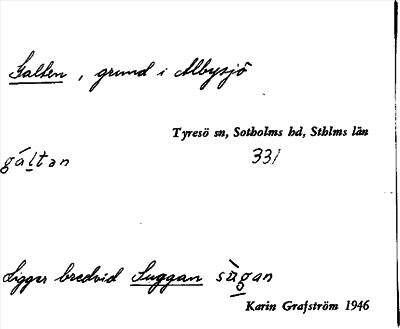 Galten, grund i Albysjö
Tyresö sn, Sotholms hd, Sthlms län
gáltan 331
Ligger bredvid Suggan sùgan
Karin Grafström 1946